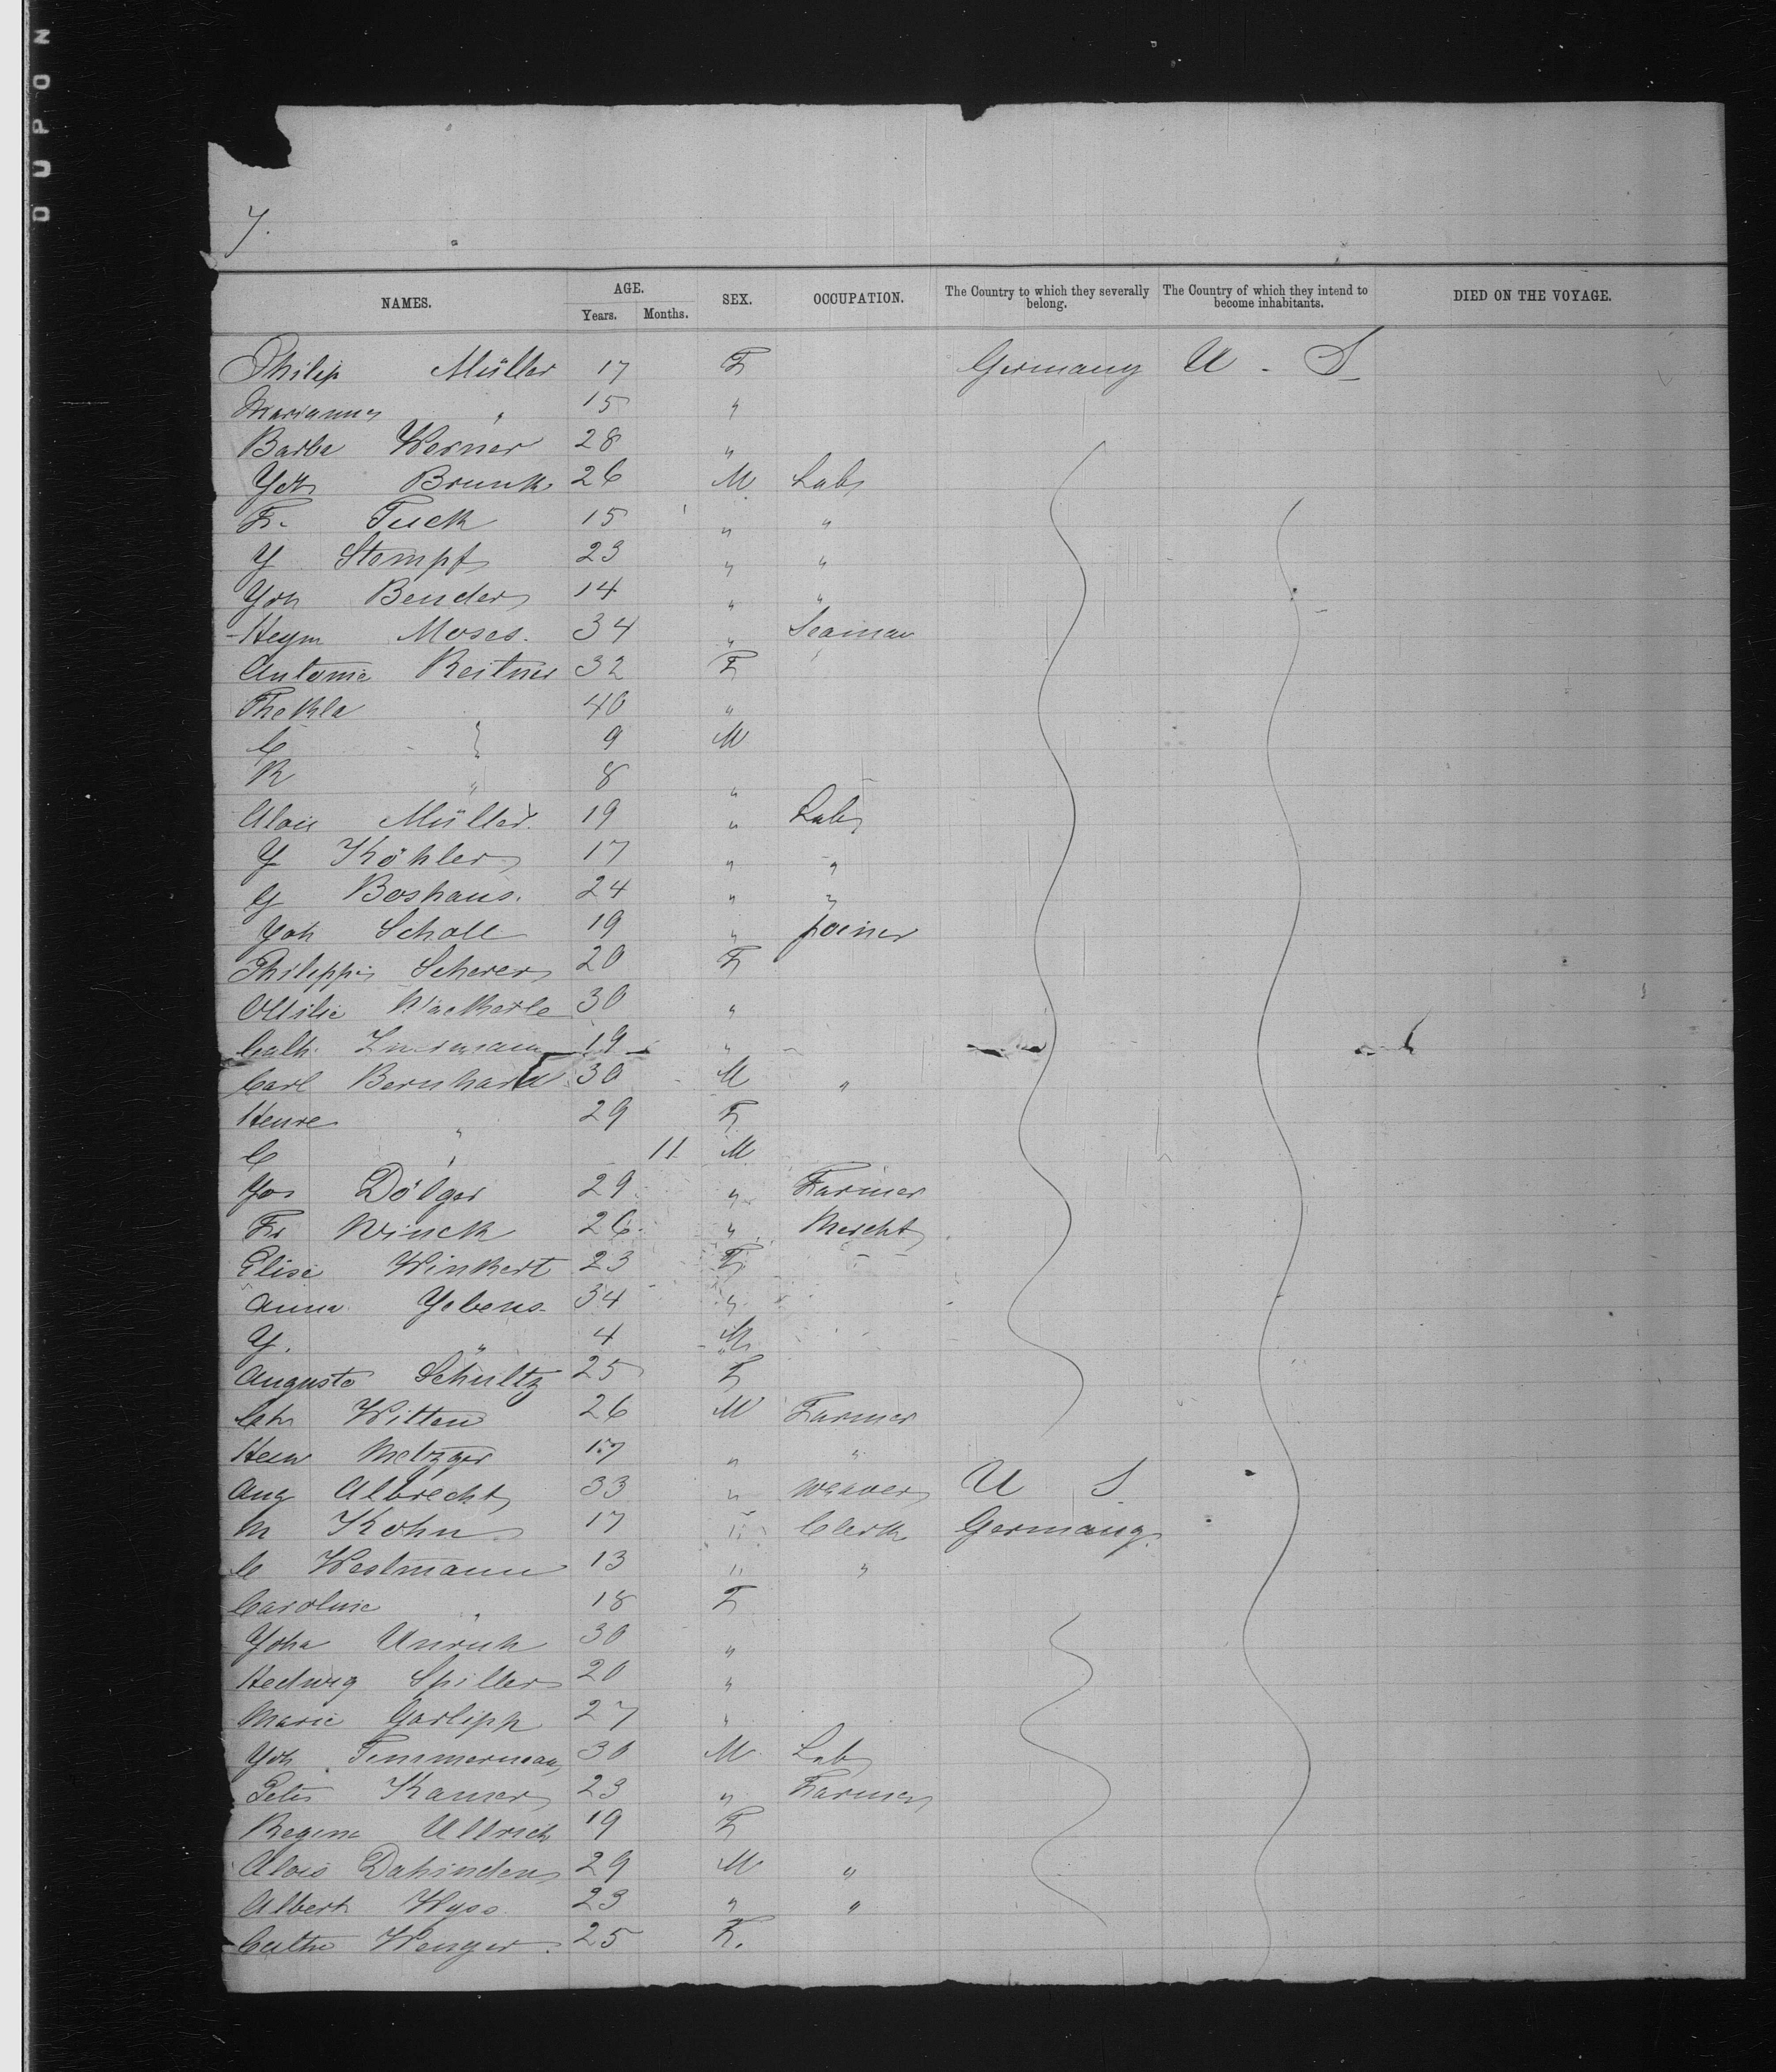 DUPON
7.
NAMES. AGE. Years. Months. SEX. OCCUPATION. The Country to which they severally belong. The Country of which they intend to become inhabitants. DIED ON THE VOYAGE.
Philip Müller 17 F Germany U - S
Marianna " 15 "
Barba Werner 28 "
Brunk 26 M Lab
Fr. Tuck 15 " "
Y Stempf 23 " "
Yoh Bender 14 " "
Heym Moses. 34 " Seaman
Antonie Reitner 32 F
Thekla 40 "
C 9 M
R " 8 "
Alois Müller 19 " Lab
Y Köhler 17 " "
G Boshaus. 24 " "
Yoh Scholl 19 " Joiner
Philippi Scherer 20 F
Ottilie Wackerle 30 "
Cath. 19 "
Carl Bernhard 30 M "
Henre " 29 F
C " 11 M
Yos Dölger 29 " Farmer
Fr Winck 26 " Mercht
Elise Winkert 23 F
Anna Yebens 34 "
Y. " 4 M
Auguste Schultz 25 F
Chr Witten 26 M Farmer
Hein Metzger 17 " "
Aug Albrecht 33 " Weaver U S
M Kohn 17 " Clerk Germany
C Westmann 13 " "
Caroline " 18 F
Yoha Unruh 30 "
Hedwig Spiller 20 "
Marie Garlipp 27 "
Yoh Timmerman 30 M Lab
Peter Kamer 23 " Farmer
Regina Ullrich 19 F
Alois Dahinden 29 M "
Albert Wyss 23 " "
Cathe Wenger 25 F.